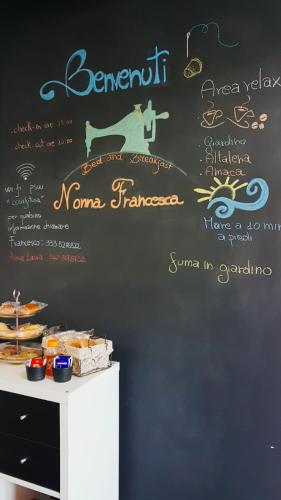 Benvenuti
. check-in ore 15.00
. check-out ore 10.00
Bed and Breakfast
Nonna Francesca
wi fi psw
per qualsiasi
informazione chiamare
Francesco:
Anna Laura:
Area relax
. Giardino
. Altalena
. Amaca
Mare a 10 min
a piedi
fuma in giardino